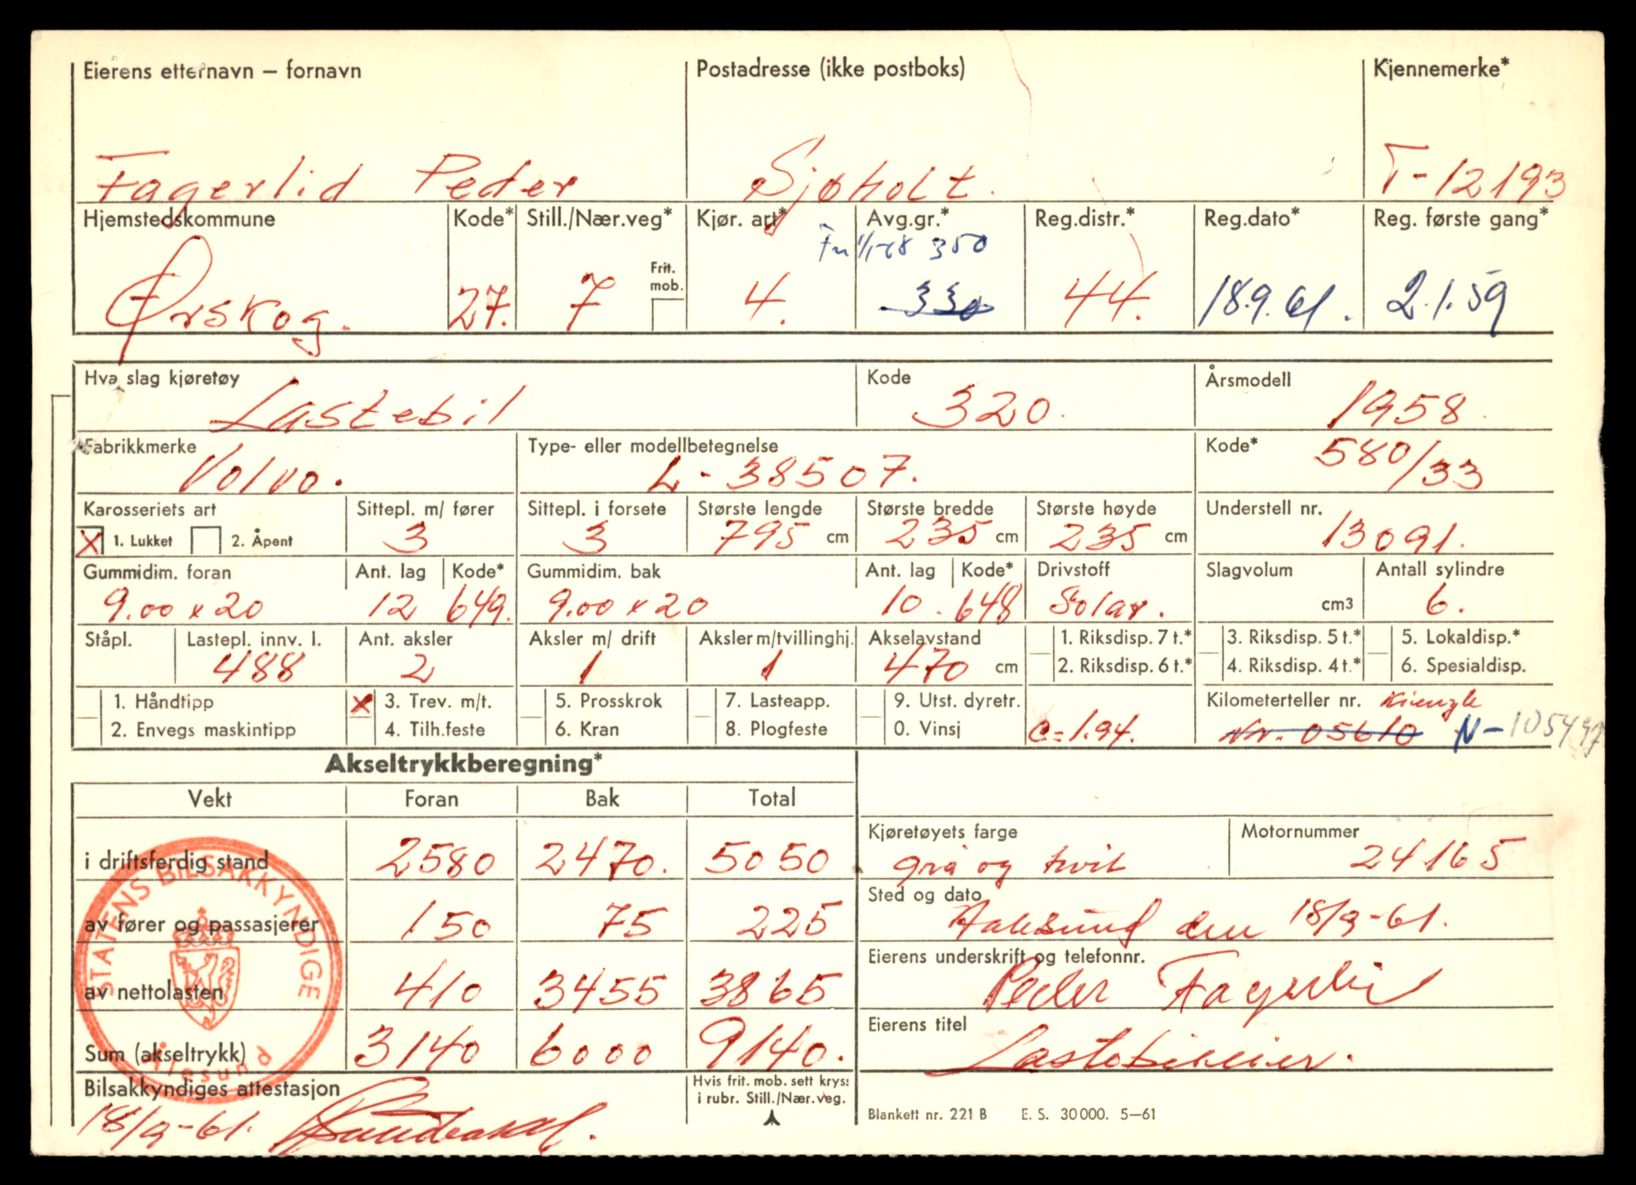 Eierens etternavn – fornavn Postadresse (ikke postboks) Kjennemerke*
Fagerlid Peder Sjøholt. T-12193
Hjemstedskommune Kode* Still./Nær.veg* Kjør. art* Avg.gr.* Reg.distr.* Reg.dato* Reg. første gang*
350
Frit. mob.
Ørskog. 27. 7 4. 330 44. 18.9.61. 2.1.59
Hva slag kjøretøy Kode Årsmodell
Lastebil 320. 1958.
Fabrikkmerke Type- eller modellbetegnelse Kode*
Volvo. L-38507. 580/33
Karosseriets art Sittepl. m/ fører Sittepl. i forsete Største lengde Største bredde Største høyde Understell nr.
X 1. Lukket 2. Åpent 3 3 795 cm 235 cm 235 cm 13091.
Gummidim. foran Ant. lag Kode* Gummidim. bak Ant. lag Kode* Drivstoff Slagvolum Antall sylindre
9.00 x 20 12 649. 9.00 x 20 10. 648 Solar. cm3 6.
Ståpl. Lastepl. innv. l. Ant. aksler Aksler m/ drift Aksler m/tvillinghj. Akselavstand 1. Riksdisp. 7 t.* 3. Riksdisp. 5 t.* 5. Lokaldisp.*
488 2 1 1 470 cm 2. Riksdisp. 6 t.* 4. Riksdisp. 4 t.* 6. Spesialdisp.
1. Håndtipp X 3. Trev. m/t. 5. Prosskrok 7. Lasteapp. 9. Utst. dyretr. Kilometerteller nr. Kienzle
2. Envegs maskintipp 4. Tilh.feste 6. Kran 8. Plogfeste 0. Vinsj C=1.94. Nr. 05610 N-105497
Akseltrykkberegning*
Vekt Foran Bak Total
Kjøretøyets farge Motornummer
i driftsferdig stand 2580 2470. 5050 grå og hvit 24165
Sted og dato
av fører og passasjerer 150 75 225 Aalesund den 18/9-61.
Eierens underskrift og telefonnr.
av nettolasten 410 3455 3865 Peder Fagerlid
Eierens titel
Sum (akseltrykk) 3140 6000 9140. Lastebileier.
STATENS BILSAKKYNDIGE
Ålesund
Bilsakkyndiges attestasjon Hvis frit. mob. sett kryss
i rubr. Still./Nær.veg.
18/9-61.
Blankett nr. 221 B E. S. 30000. 5–61